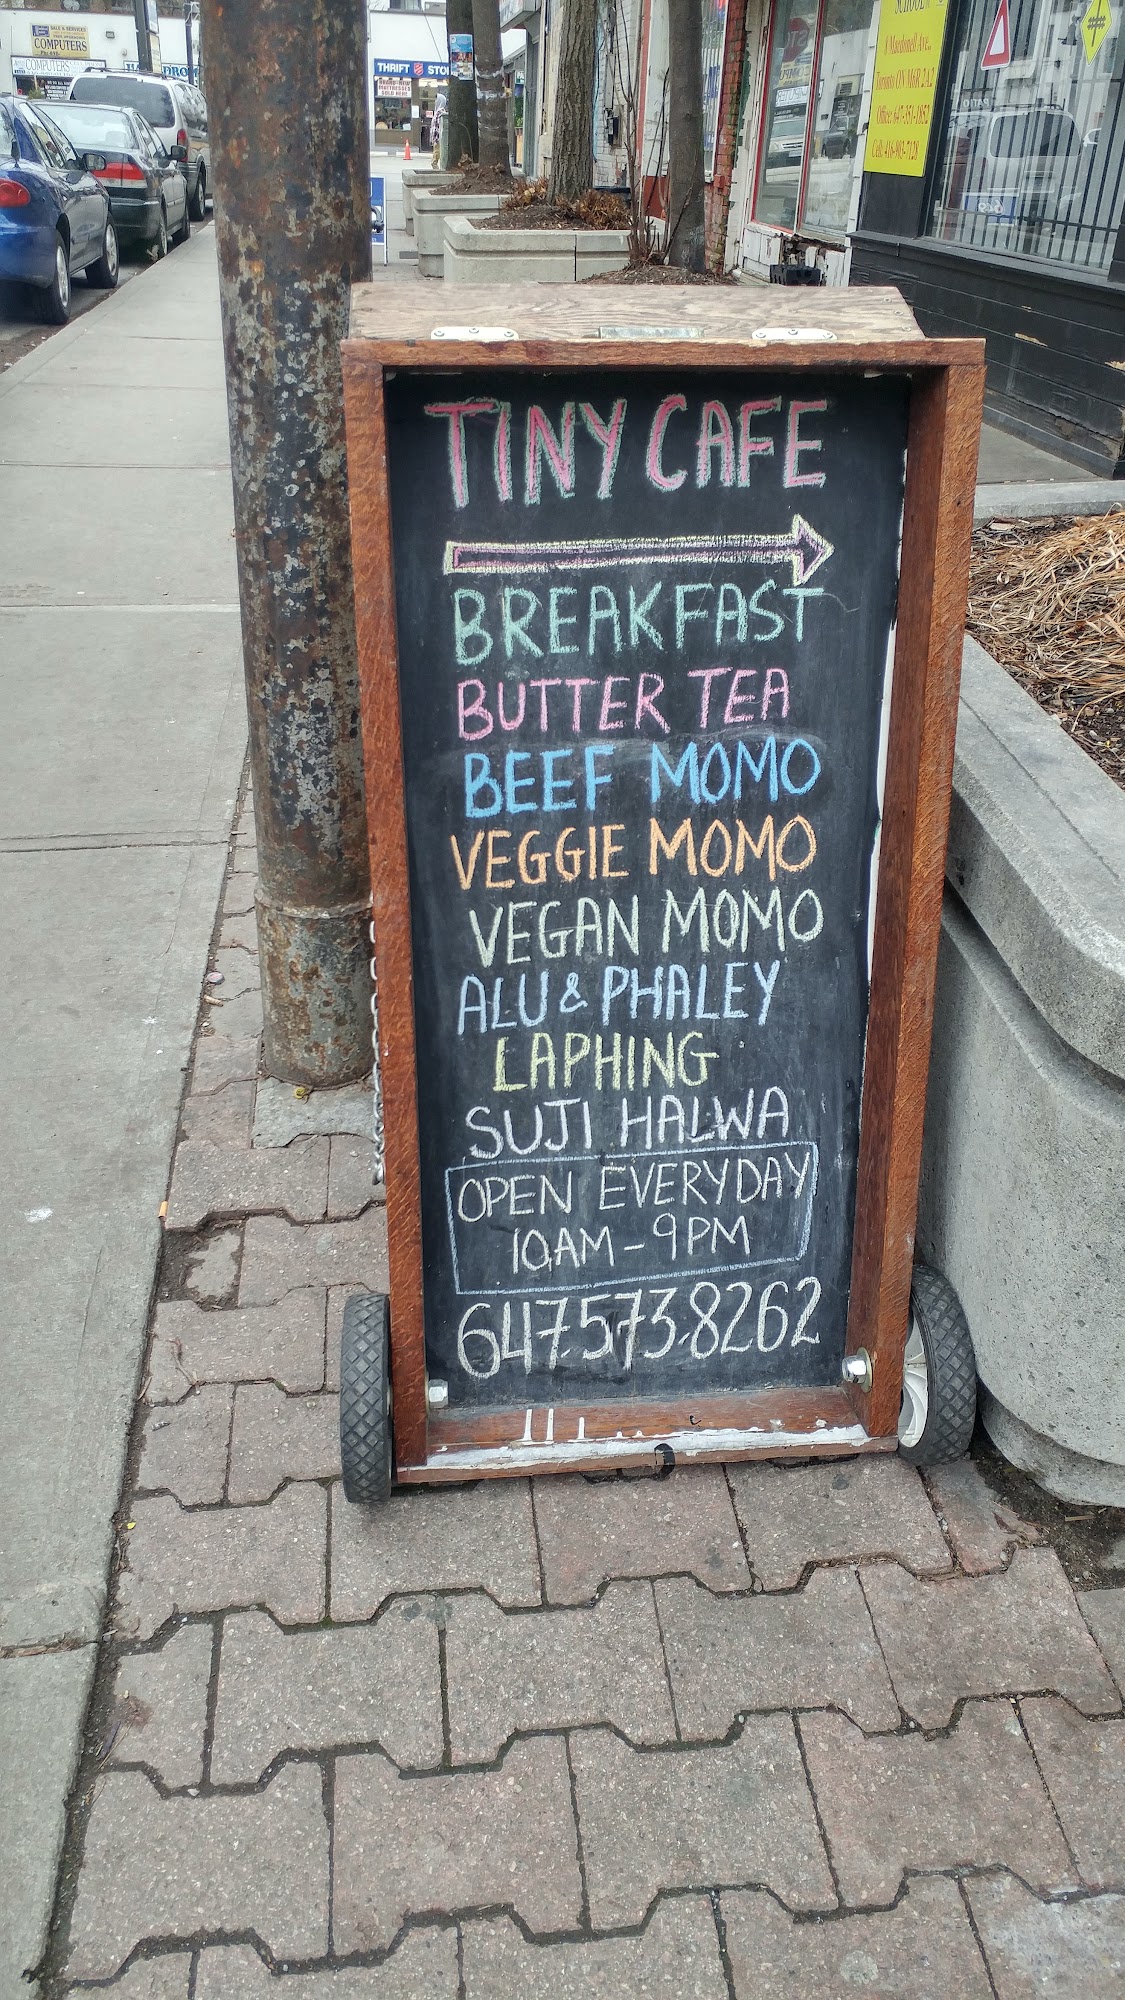 SALE & SERVICES
COMPUTERS
COMPUTERS
THRIFT STO
BRAND-NEW
MATTRESSES
SOLD HERE
SCHOOL
4 Macdonell Ave.
Toronto ON M6R 2A2
Office: 647-351-1852
Cell: 416-903-7128
TINY CAFE
BREAKFAST
BUTTER TEA
BEEF MOMO
VEGGIE MOMO
VEGAN MOMO
ALU & PHALEY
LAPHING
SUJI HALWA
OPEN EVERYDAY
10AM - 9PM
647.573.8262